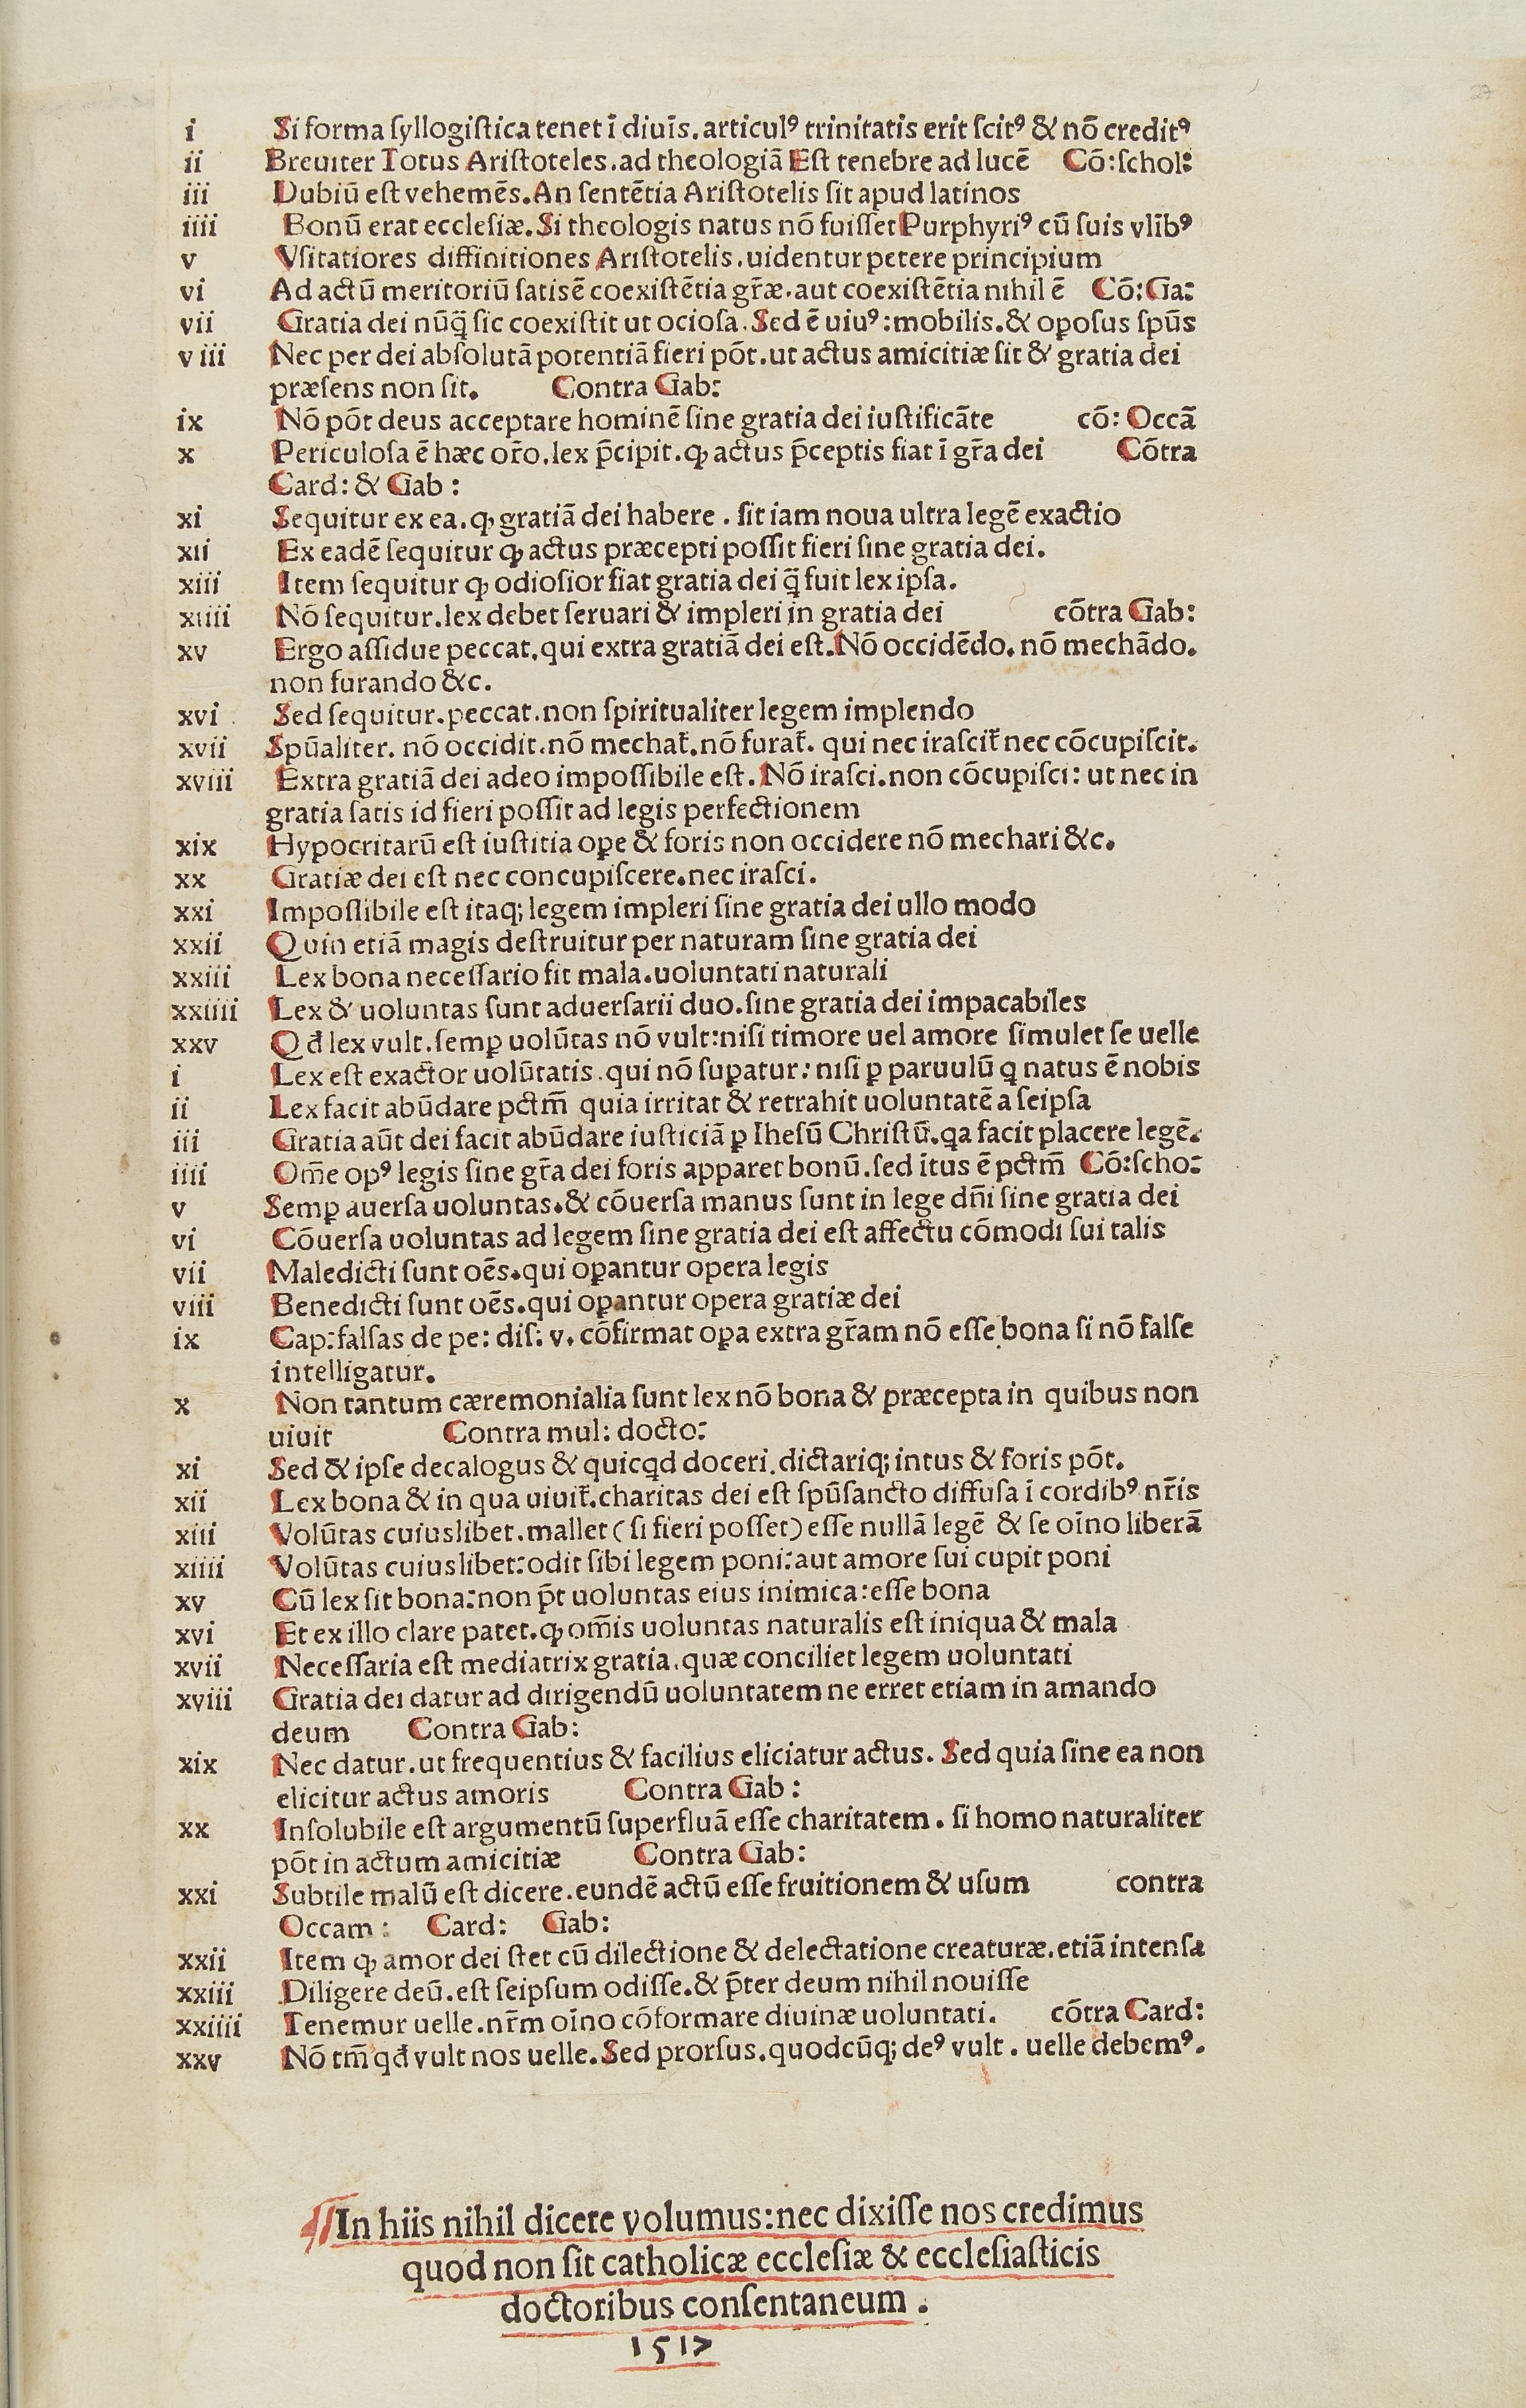 i Si forma syllogistica tenet ī diuīs. articulꝰ trinitatis erit scitꝰ & nō creditꝰ
ii Breuiter Totus Aristoteles. ad theologiā Est tenebre ad lucē Cō: schol:
iii Dubiū est vehemēs. An sentētia Aristotelis sit apud latinos
iiii Bonū erat ecclesiæ. Si theologis natus nō fuisset Purphyriꝰ cū suis vlībꝰ
v Vsitatiores diffinitiones Aristotelis. uidentur petere principium
vi Ad actū meritoriū satis ē coexistētia gr̄æ. aut coexistētia nihil ē Cō: Ga:
vii Gratia dei nūq̄ sic coexistit ut ociosa. Sed ē uiuꝰ: mobilis. & oꝑosus spūs
viii Nec per dei absolutā potentiā fieri pōt. ut actus amicitiæ sit & gratia dei
præsens non sit. Contra Gab:
ix Nō pōt deus acceptare hominē sine gratia dei iustificāte cō: Occā
x Periculosa ē hæc or̄o. lex p̄cipit. ꝙ actus p̄ceptis fiat ī gr̄a dei Cōtra
Card: & Gab:
xi Sequitur ex ea. ꝙ gratiā dei habere. sit iam noua ultra legē exactio
xii Ex eadē sequitur ꝙ actus præcepti possit fieri sine gratia dei.
xiii Item sequitur ꝙ odiosior fiat gratia dei q̄ fuit lex ipsa.
xiiii Nō sequitur. lex debet seruari & impleri in gratia dei cōtra Gab:
xv Ergo assidue peccat. qui extra gratiā dei est. Nō occidēdo. nō mechādo.
non furando &c.
xvi Sed sequitur. peccat. non spiritualiter legem implendo
xvii Spūaliter. nō occidit. nō mechat᷑. nō furat᷑. qui nec irascit᷑ nec cōcupiscit.
xviii Extra gratiā dei adeo impossibile est. Nō irasci. non cōcupisci: ut nec in
gratia satis id fieri possit ad legis perfectionem
xix Hypocritarū est iustitia oꝑe & foris non occidere nō mechari &c.
xx Gratiæ dei est nec concupiscere. nec irasci.
xxi Impossibile est itaq; legem impleri sine gratia dei ullo modo
xxii Quin etiā magis destruitur per naturam sine gratia dei
xxiii Lex bona necessario fit mala. uoluntati naturali
xxiiii Lex & uoluntas sunt aduersarii duo. sine gratia dei impacabiles
xxv Qđ lex vult. semꝑ uolūtas nō vult: nisi timore uel amore simulet se uelle
i Lex est exactor uolūtatis. qui nō suꝑatur: nisi ꝑ paruulū q natus ē nobis
ii Lex facit abūdare pctm̄ quia irritat & retrahit uoluntatē a seipsa
iii Gratia aūt dei facit abūdare iusticiā ꝑ Ihesū Christū. qa facit placere legē.
iiii Om̄e opꝰ legis sine gr̄a dei foris apparet bonū. sed ītus ē pctm̄ Cō: scho:
v Semꝑ auersa uoluntas. & cōuersa manus sunt in lege dn̄i sine gratia dei
vi Cōuersa uoluntas ad legem sine gratia dei est affectu cōmodi sui talis
vii Maledicti sunt oēs. qui oꝑantur opera legis
viii Benedicti sunt oēs. qui oꝑantur opera gratiæ dei
ix Cap: falsas de pe: dis: v. cōfirmat oꝑa extra gr̄am nō esse bona si nō false
intelligatur.
x Non tantum cæremonialia sunt lex nō bona & præcepta in quibus non
uiuit Contra mul: docto:
xi Sed & ipse decalogus & quicqd doceri. dictariq; intus & foris pōt.
xii Lex bona & in qua uiuit᷑. charitas dei est spūsancto diffusa ī cordibꝰ nr̄is
xiii Volūtas cuiuslibet. mallet (si fieri posset) esse nullā legē & se oīno liberā
xiiii Volūtas cuiuslibet: odit sibi legem poni: aut amore sui cupit poni
xv Cū lex sit bona: non p̄t uoluntas eius inimica: esse bona
xvi Et ex illo clare patet. ꝙ om̄is uoluntas naturalis est iniqua & mala
xvii Necessaria est mediatrix gratia. quæ conciliet legem uoluntati
xviii Gratia dei datur ad dirigendū uoluntatem ne erret etiam in amando
deum Contra Gab:
xix Nec datur. ut frequentius & facilius eliciatur actus. Sed quia sine ea non
elicitur actus amoris Contra Gab:
xx Insolubile est argumentū superfluā esse charitatem. si homo naturaliter
pōt in actum amicitiæ Contra Gab:
xxi Subtile malū est dicere. eundē actū esse fruitionem & usum contra
Occam: Card: Gab:
xxii Item ꝙ amor dei stet cū dilectione & delectatione creaturæ. etiā intensa
xxiii Diligere deū. est seipsum odisse. & p̄ter deum nihil nouisse
xxiiii Tenemur uelle. nr̄m oīno cōformare diuinæ uoluntati. cōtra Card:
xxv Nō tm̄ qđ vult nos uelle. Sed prorsus. quodcūq; deꝰ vult. uelle debemꝰ.
¶ In hiis nihil dicere volumus: nec dixisse nos credimus
quod non sit catholicæ ecclesiæ & ecclesiasticis
doctoribus consentaneum.
1517